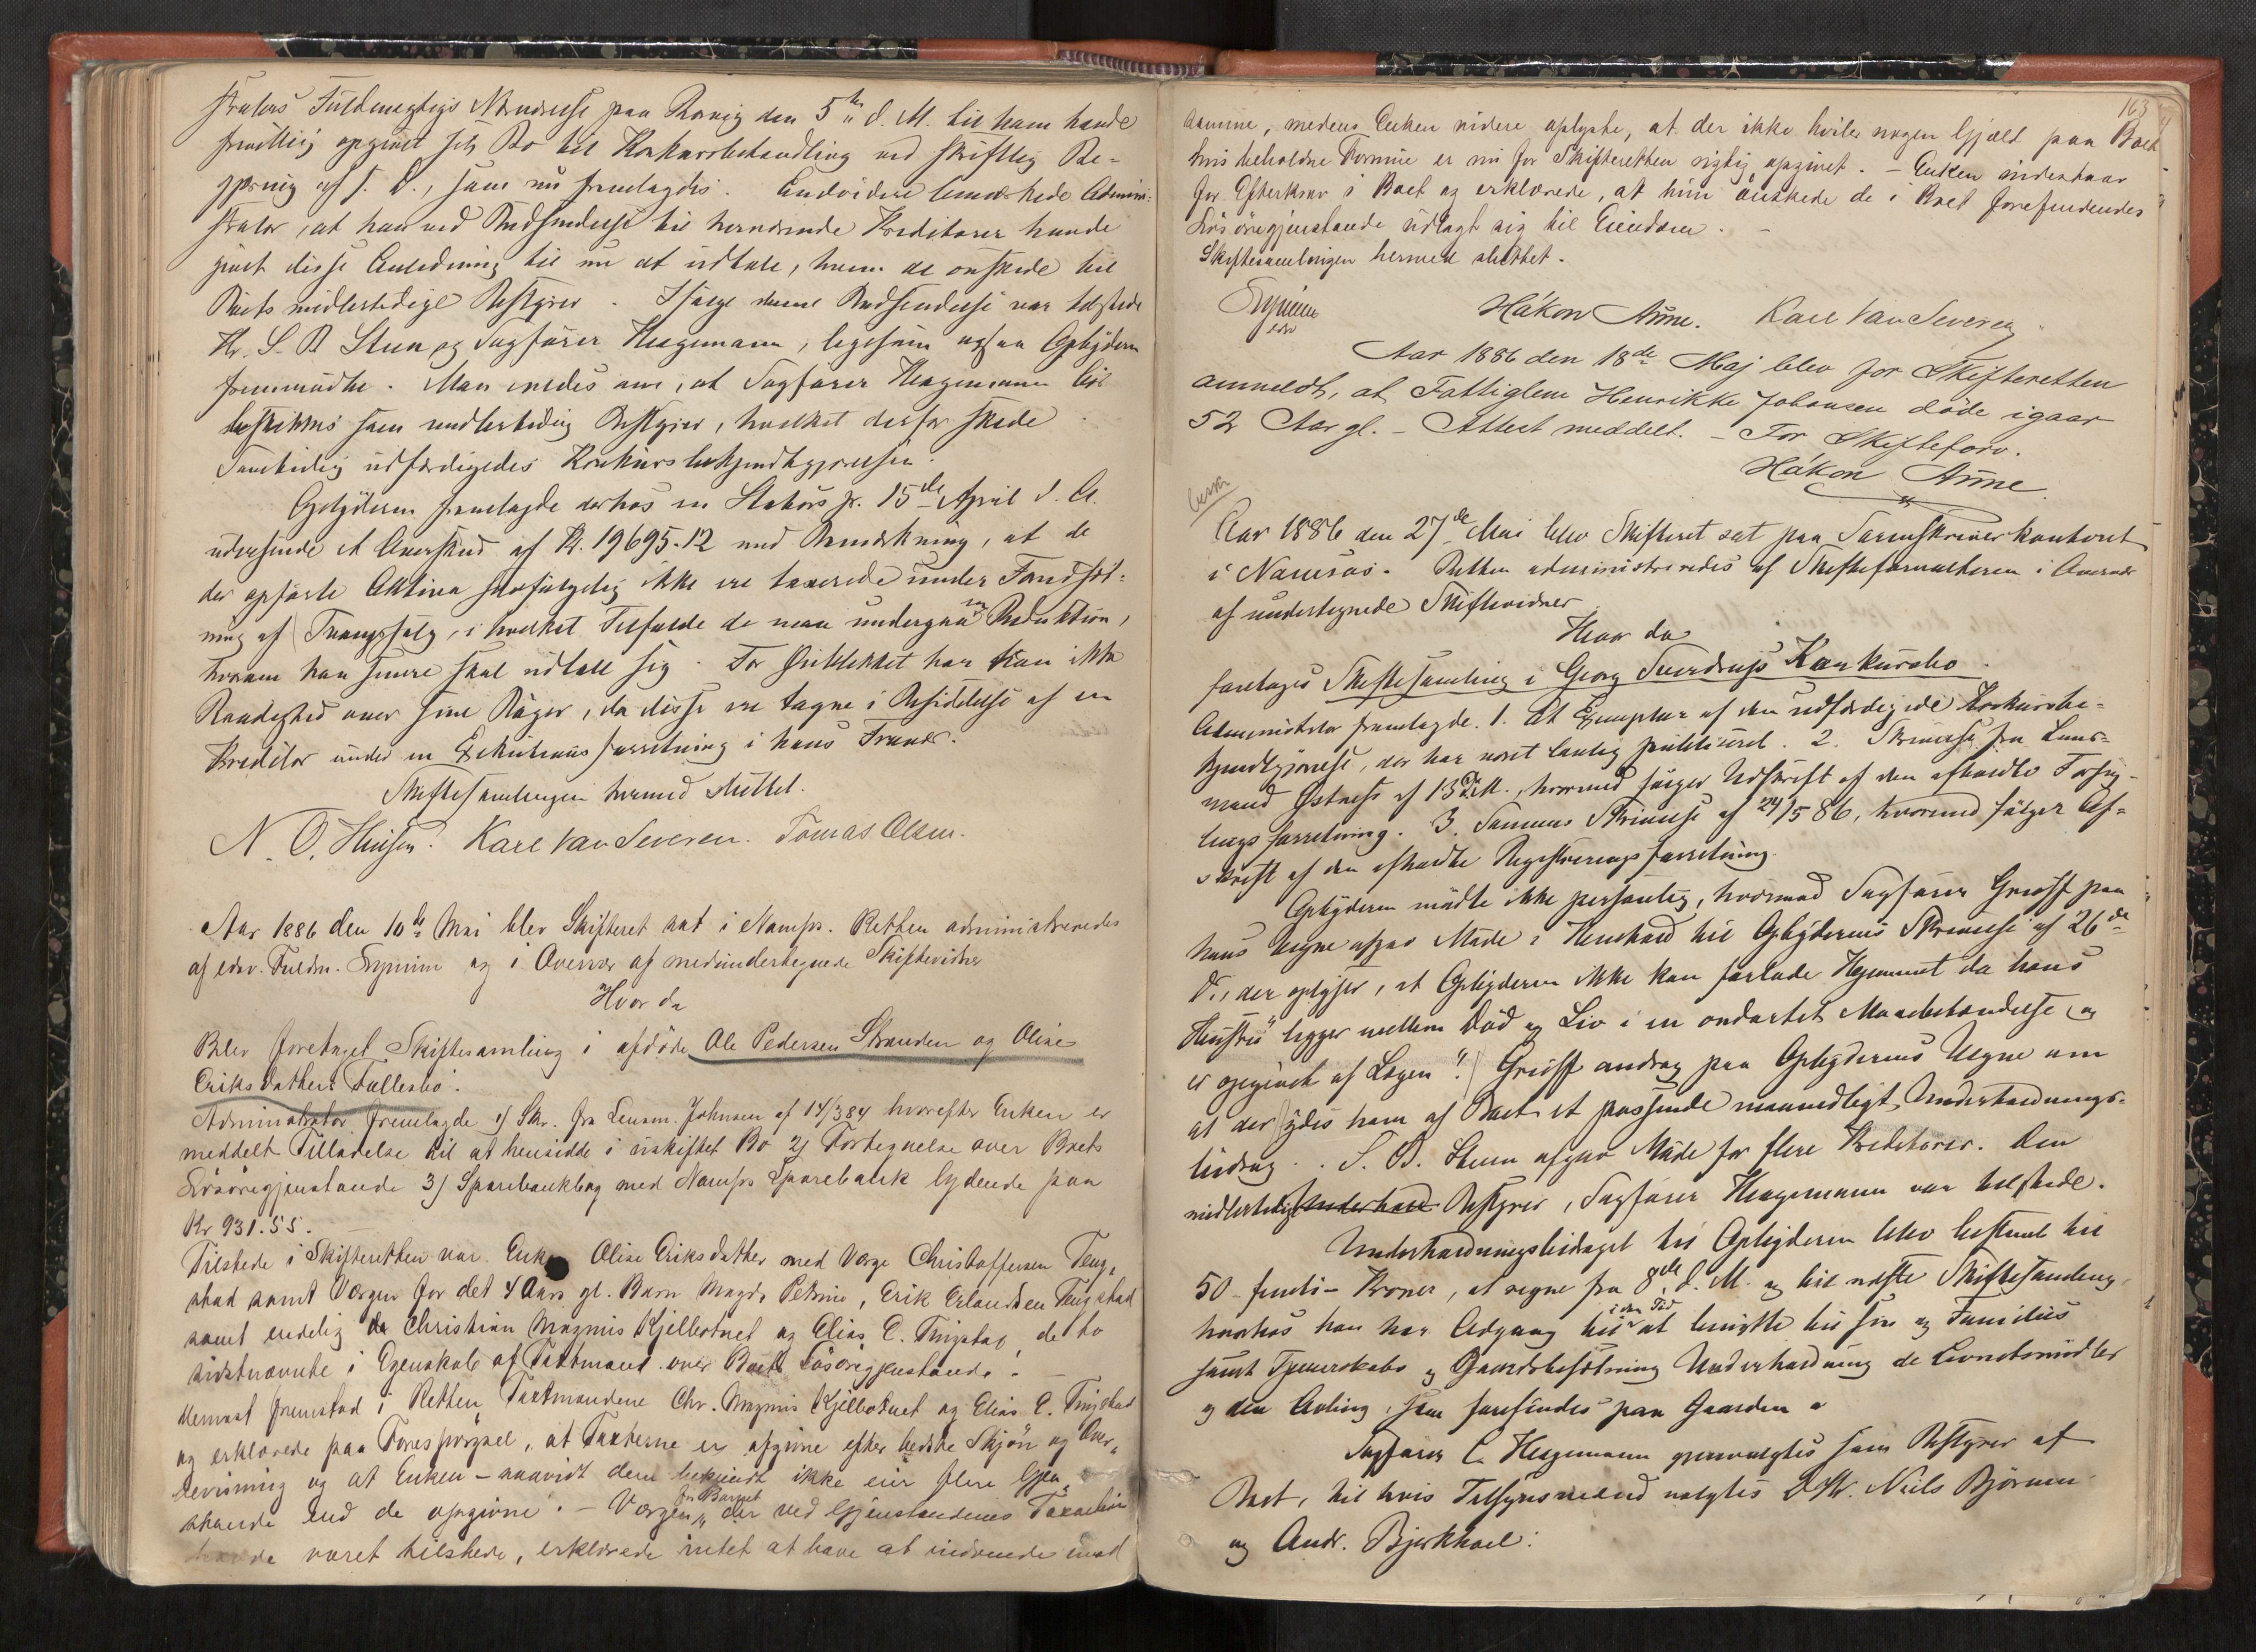 strators Fuldmægtigs Nærværelse paa Rørvig den 5te d. M. til ham havde
frivillig opgivet sit Bo til Konkursbehandling ved skriftlig Be-
gjæring af s. D., som nu fremlagdes. Endvidere bemærkede Admini-
strator, at han ved Rundsendelse til herværende Kreditorer havde
givet disse Anledning til nu at udtale, hvem de ønskede til
Boets midlertidige Bestyrer. Ifølge denne Rundsendelse var tilstede
Hr. S. B. Steen og Sagfører Hagemann, ligesom ogsaa Opbyderen
fremmødte. Man enedes om, at Sagfører Hagemann blev
beskikket som midlertidig Bestyrer, hvilket derfor skede.
Samtidig udfærdigedes Konkursbekjendtgjørelsen.
Opbyderen fremlagde derhos en Status pr. 15de April d. A.
udvisende et Overskud af Kr. 19695.12 med Bemærkning, at de
der opførte Aktiva selvfølgelig ikke ere taxerede under Forudsæt-
ning af Tvangssalg, i hvilket Tilfælde de maa undergaa en Reduktion,
hvorom han senere skal udtale sig. For Øieblikket har han ikke
Raadighed over sine Bøger, da disse ere tagne i Besiddelse af en
Kreditor under en Exekutionsforretning i hans Fravær.
Skiftesamlingen hermed sluttet.
N. O. Karl Van Severen. Tomas Olsen.
Aar 1886 den 10de Mai blev Skifteret sat i Namsos. Retten administreredes
af edsv. Fuldm. og i Overvær af medundertegnede Skiftevidner
Hvor da
Blev foretaget Skiftesamling i afdøde Ole Pedersen Stranden og Olise
Eriksdatters Fællesbo.
Administrator fremlagde 1) Skr. fra Lensm. Johnsen af 14/3 84 hvorefter Enken er
meddelt Tilladelse til at hensidde i uskiftet Bo 2) Fortegnelse over Boets
Løsøregjenstande 3) Sparebankbog med Namsos Sparebank lydende paa
Kr 931.55.
Tilstede i Skifteretten var Enken Olise Eriksdatter med Værge Christoffersen Ting-
stad samt Værgen for det 4 Aars gl. Barn Magda Petrine, Erik Erlandsen Tingstad
samt endelig Christian Magnus Kjelbotnet og Elias E. Tingstad, de to
sidstnævnte i Egenskab af Taxtmænd over Boets Løsøregjenstande.
Dernæst fremstod i Retten Taxtmændene Chr. Magnus Kjelbotnet og Elias E. Tingstad
og erklærede paa Forespørgsel, at Taxterne er afgivne efter bedste Skjøn og Over-
bevisning og at Enken – saavidt dem bekjendt ikke eier flere Gjen-
stande end de opgivne. – Værgen for Barnet der ved Gjenstandenes Taxation
havde været tilstede, erklærede intet at have at indvende mod
163
samme, medens Enken videre oplyste, at der ikke hviler nogen Gjæld paa Boet
hvis beholdne Formue er nu for Skifteretten rigtig opgivet. – Enken indestaar
for Efterkrav i Boet og erklærede, at hun ønskede de i Boet forefindendes
Løsøregjenstande udlagt sig til Eiendom.
Skiftesamlingen hermed sluttet.
Håkon Aune. Karl Van Severen
Aar 1886 den 18de Maj blev for Skifteretten
anmeldt, at Fattiglem Henrikke Johansen døde igaar
52 Aar gl. – Attest meddelt. – For Skifteforv.
Håkon Aune
Aar 1886 den 27de Mai blev Skifteret sat paa Sorenskriverkontoret
i Namsos. Retten administreredes af Skifteforvalteren i Overvær
af undertegnede Skiftevidner
Hvor da
foretages Skiftesamling i Georg Sverdrups Konkursbo.
Administrator fremlagde 1. Et Exemplar af den udfærdigede Konkursbe-
kjendtgjørelse, der har været lovlig publiceret. 2. Skrivelse fra Lens-
mand af 13 d. M., hvormed følger Udskrift af den afholdte Forseg-
lingsforretning. 3. Sammes Skrivelse af 24/5 86, hvormed følger Af-
skrift af den afholdte Registreringsforretning.
Opbyderen mødte ikke personlig, hvorimod Sagfører Grüff paa
hans Vegne afgav Møde i Henhold til Opbyderens Skrivelse af 26de
ds., der oplyser, at Opbyderen ikke kan forlade Hjemmet da hans
Hustru "ligger mellem Død og Liv i en ondartet Mavebetændelse og
er opgivet af Lægen". Grüff androg paa Opbyderens Vegne om
at der ydes ham af Boet et passende maanedligt Underholdnings-
bidrag. S. B. Steen afgav Møde for flere Kreditorer. Den
midlertidige Underhold Bestyrer, Sagfører Hagemann var tilstede.
Underholdningsbidraget til Opbyderen blev bestemt til
50 – femti – Kroner, at regne fra 8de d. M. og til næste Skiftesamling
hvorhos han har Adgang til i den Tid at benytte til sin og Families
samt Tjenerskabs og Gaardsbesætning Underholdning de Levnetsmidler
og den Avling, som forefindes paa Gaarden.
Sagfører C. Hagemann gjenvalgtes som Bestyrer af
Boet, til hvis Tilsynsmænd valgtes DHr. Niels Bjørum
og Andr. Bjerkhoel: